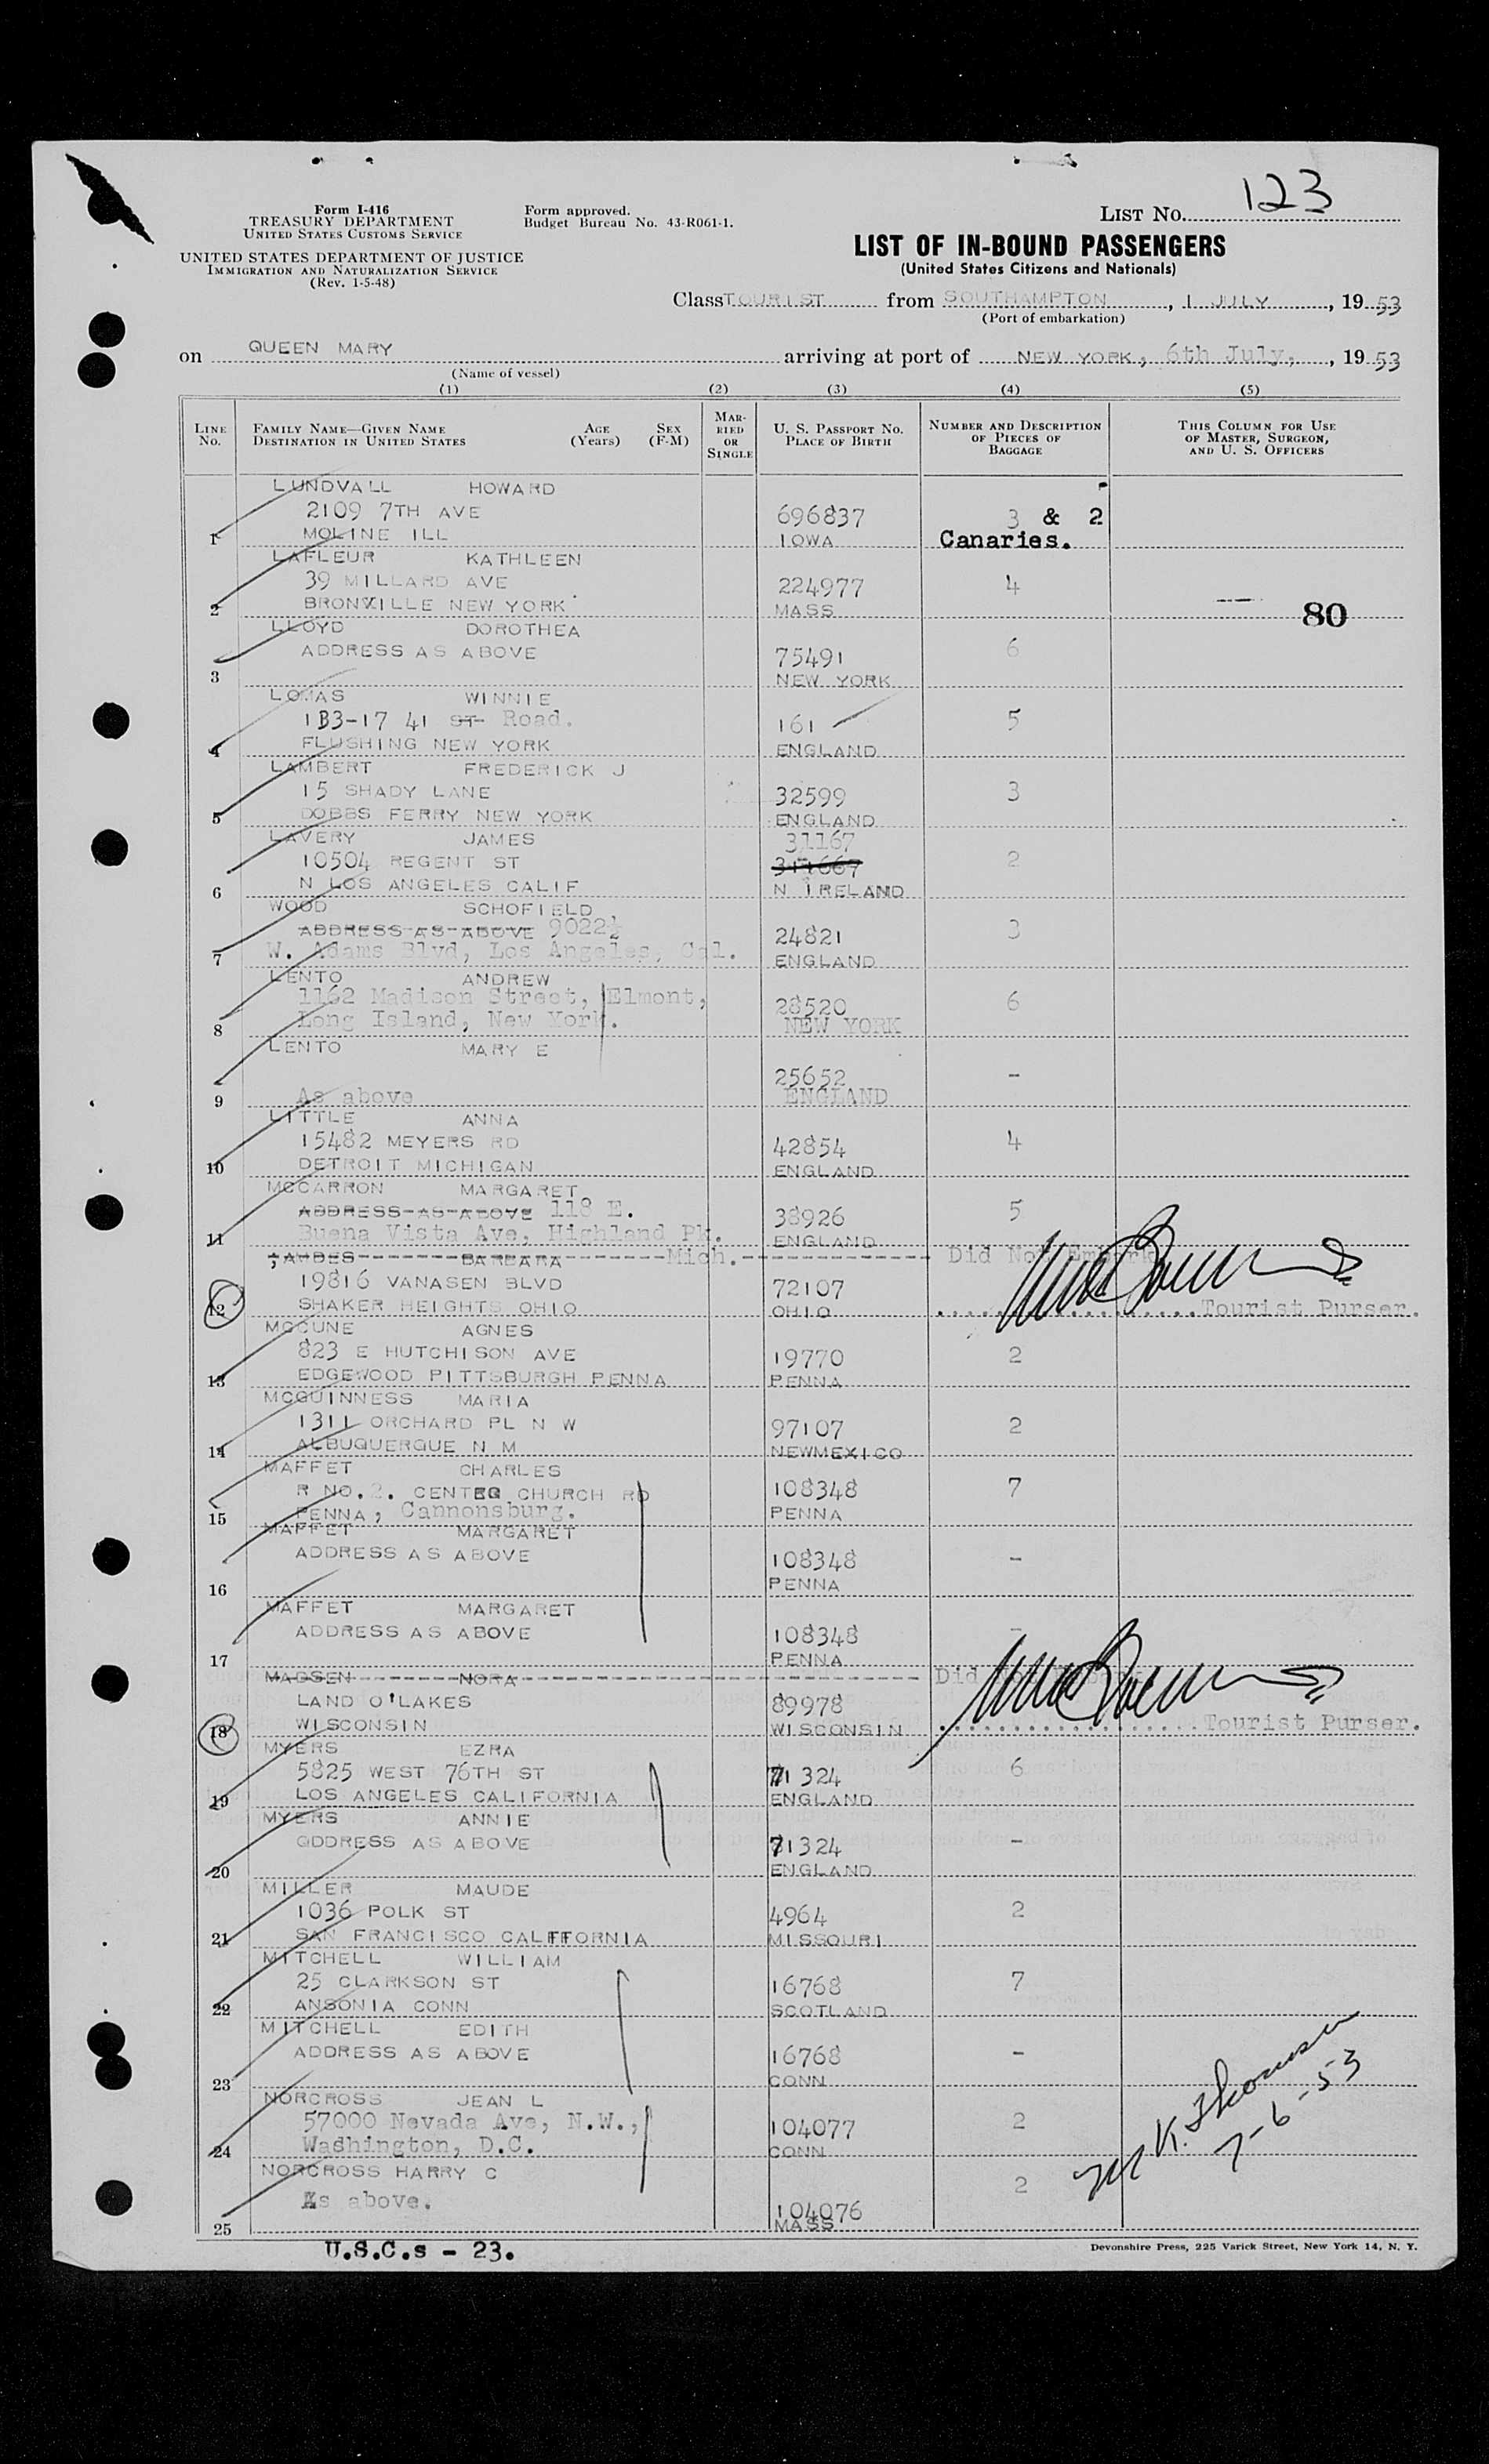 123
Form I-416
TREASURY DEPARTMENT
UNITED STATES CUSTOMS SERVICE
Form approved.
Budget Bureau No. 43-R061-1.
LIST No.
UNITED STATES DEPARTMENT OF JUSTICE
IMMIGRATION AND NATURALIZATION SERVICE
(Rev. 1-5-48)
LIST OF IN-BOUND PASSENGERS
(United States Citizens and Nationals)
Class TOURIST from SOUTHAMPTON, 1 JULY, 1953
(Port of embarkation)
on QUEEN MARY arriving at port of NEW YORK, 6th July, 1953
(Name of vessel)
(1) (2) (3) (4) (5)
LINE No.
FAMILY NAME—GIVEN NAME
DESTINATION IN UNITED STATES
AGE (Years)
SEX (F-M)
MARRIED OR SINGLE
U. S. PASSPORT NO.
PLACE OF BIRTH
NUMBER AND DESCRIPTION OF PIECES OF BAGGAGE
THIS COLUMN FOR USE OF MASTER, SURGEON, AND U. S. OFFICERS
LUNDVALL HOWARD
2109 7TH AVE 696837 3 & 2
1 MOLINE ILL IOWA Canaries.
LAFLEUR KATHLEEN
39 MILLARD AVE 224977 4
2 BRONXILLE NEW YORK MASS 80
LLOYD DOROTHEA
ADDRESS AS ABOVE 75491 6
3 NEW YORK
LOMAS WINNIE
1B3-17 41 ST Road. 161 5
4 FLUSHING NEW YORK ENGLAND
LAMBERT FREDERICK J
15 SHADY LANE 32599 3
5 DOBBS FERRY NEW YORK ENGLAND
LAVERY JAMES 31167
10504 REGENT ST 311667 2
6 N LOS ANGELES CALIF N IRELAND
WOOD SCHOFIELD
ADDRESS AS ABOVE 9022½ 24821 3
7 W. Adams Blvd, Los Angeles, Cal. ENGLAND
LENTO ANDREW
1162 Madison Street, Elmont, 28520 6
8 Long Island, New York. NEW YORK
LENTO MARY E
25652 -
9 As above ENGLAND
LITTLE ANNA
15482 MEYERS RD 42854 4
10 DETROIT MICHIGAN ENGLAND
MCCARRON MARGARET
ADDRESS AS ABOVE 118 E. 38926 5
11 Buena Vista Ave, Highland Pk. ENGLAND
BARBARA Mich. Did Not Embark
19816 VANASEN BLVD 72107
12 SHAKER HEIGHTS OHIO OHIO Tourist Purser.
MCCUNE AGNES
823 E HUTCHISON AVE 19770 2
13 EDGEWOOD PITTSBURGH PENNA PENNA
MCGUINNESS MARIA
1311 ORCHARD PL N W 97107 2
14 ALBUQUERQUE N M NEWMEXICO
MAFFET CHARLES
R NO.2. CENTER CHURCH RD 108348 7
15 PENNA, Cannonsburg. PENNA
MAFFET MARGARET
ADDRESS AS ABOVE 108348 -
16 PENNA
MAFFET MARGARET
ADDRESS AS ABOVE 108348 -
17 PENNA
MADSEN NORA Did
LAND O'LAKES 89978
18 WISCONSIN WISCONSIN Tourist Purser.
MYERS EZRA
5825 WEST 76TH ST 71324 6
19 LOS ANGELES CALIFORNIA ENGLAND
MYERS ANNIE
QDDRESS AS ABOVE 71324 -
20 ENGLAND
MILLER MAUDE
1036 POLK ST 4964 2
21 SAN FRANCISCO CALIFORNIA MISSOURI
MITCHELL WILLIAM
25 CLARKSON ST 16768 7
22 ANSONIA CONN SCOTLAND
MITCHELL EDITH
ADDRESS AS ABOVE 16768 -
23 CONN
NORCROSS JEAN L
57000 Nevada Ave, N.W., 104077 2
24 Washington, D.C. CONN
NORCROSS HARRY C 2
As above. 104076
25 MASS
7-6-53
U.S.C.s - 23.
Devonshire Press, 225 Varick Street, New York 14, N. Y.